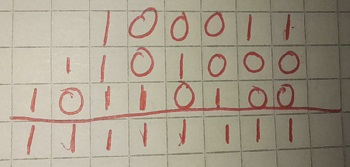 100011
1101000
10110100
11111111